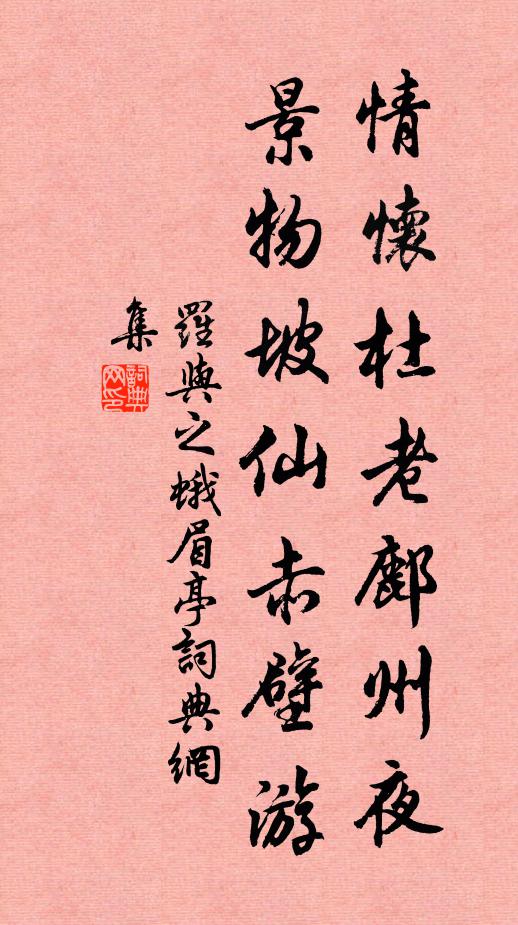 情懷杜老鄜州夜
景物坡仙赤壁游
羅與之蛾眉亭詞典網
集
詞典
网印